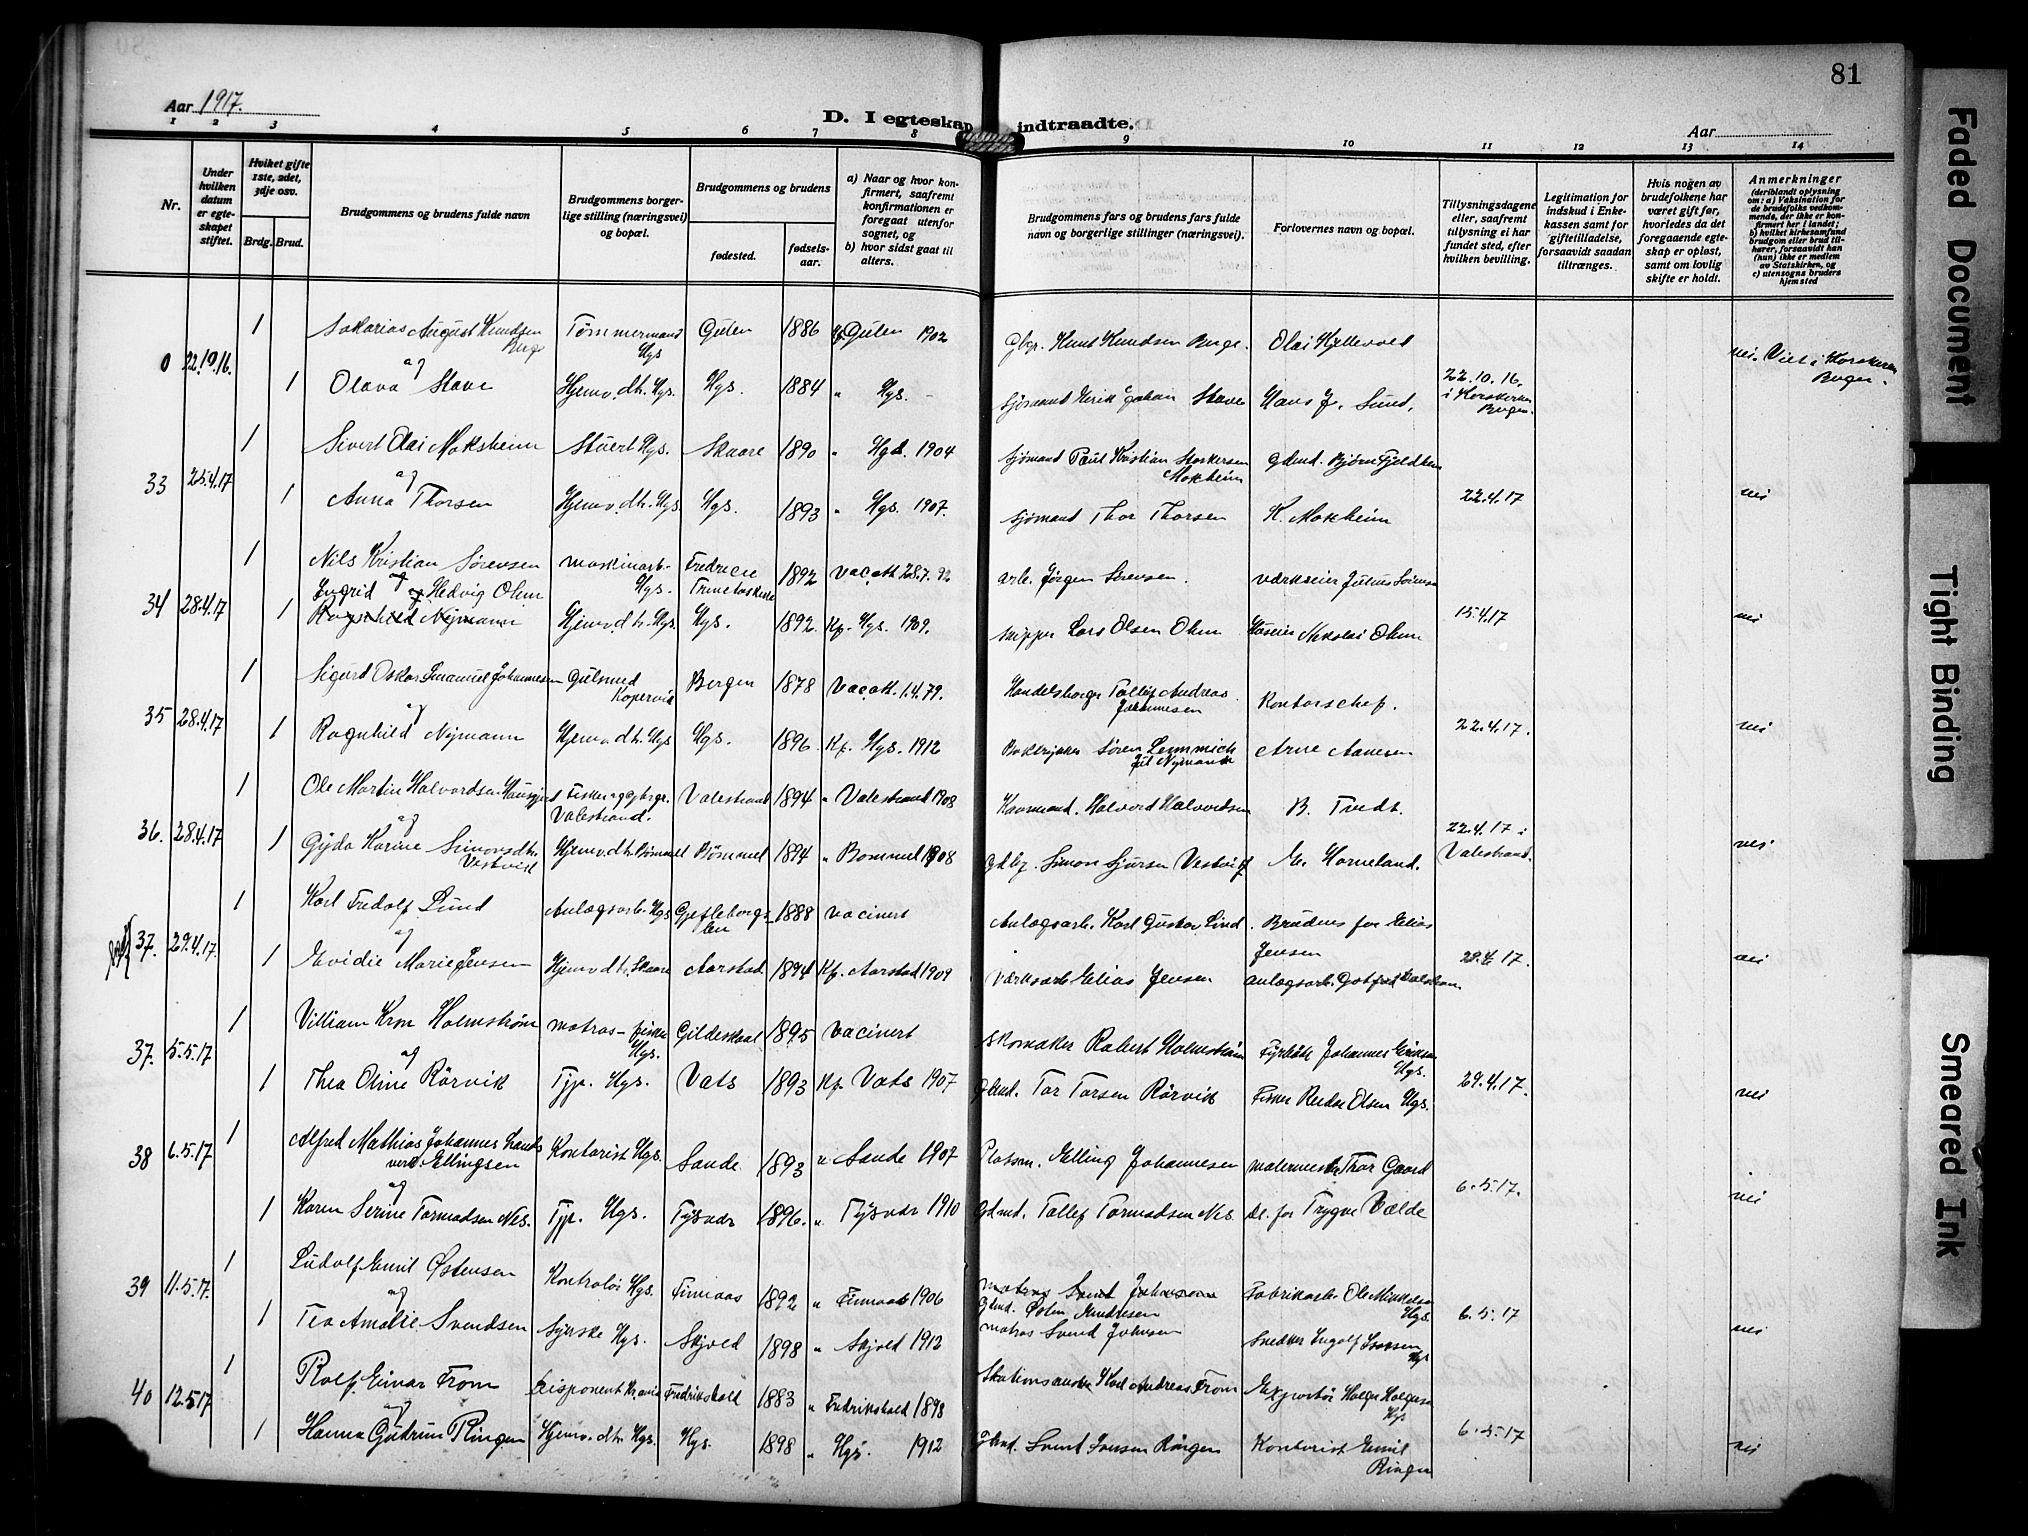 81
Aar 1917.
D. I egteskap indtraadte.
Aar
1 2 3 4 5 6 7 8 9 10 11 12 13 14
Nr.
Under hvilken datum er egteskapet stiftet.
Hviket gifte 1ste, 2det, 3dje osv.
Brdg. Brud.
Brudgommens og brudens fulde navn
Brudgommens borgerlige stilling (næringsvei) og bopæl.
Brudgommens og brudens
fødested.
fødselsaar.
a) Naar og hvor konfirmert, saafremt konfirmationen er foregaat utenfor sognet, og
b) hvor sidst gaat til alters.
Brudgommens fars og brudens fars fulde navn og borgerlige stillinger (næringsvei).
Forlovernes navn og bopæl.
Tillysningsdagene eller, saafremt tillysning ei har fundet sted, efter hvilken bevilling.
Legitimation for indskud i Enkekassen samt for giftetilladelse, forsaavidt saadan tiltrænges.
Hvis nogen av brudefolkene har været gift før, hvorledes da det foregaaende egteskap er opløst, samt om lovlig skifte er holdt.
Anmerkninger
(deriblandt oplysning om: a) Vaksination for de brudefolks vedkommende, der ikke er konfirmert her i landet; b) hvilket kirkesamfund brudgom eller brud tilhører, forsaavidt han (hun) ikke er medlem av Statskirken, og c) utensogns bruders hjemsted
0 22.10.16. 1 Sakarias August Knudsen Berge Tømmermand Hgs Gulen 1886 Kf. Gulen 1902 Gbr. Knut Knudsen Berge. Olai Kjellevold
og
1 Olava Stave Hjemv. dtr. Hgs. Hgs. 1884 " Hgs. - Sjømand Eerik Johan Stave Hans J. Sund. 22.10.16. i Korskirken Bergen. nei. Viet i Korskirken Bergen.
33 25.4.17 1 Sivert Olai Moksheim Stuert Hgs. Skaare 1890 " Hgd. 1904 Sjømand Paul Kristian Storkersen Mokheim Gdmd. Bjørn Fjeldheim
og
1 Anna Thorsen Hjemv. dtr. Hgs. Hgs. 1893 " Hgs. 1907. Sjømand Thor Thorsen K. Mokheim 22.4.17 nei
34 28.4.17 1 Nils Kristian Sørensen maskinarb. Hgs. Fredricia Trinitatiskirke 1892 Vacatt. 28.7.92 arb. Jørgen Sørensen. værkseier Julius Sørensen
og
1 Ingrid Hedvig Ohm Ragnhild Nymann Hjemv. dtr. Hgs. Hgs. 1892. Kf. Hgs. 1909. skipper Lars Olsen Ohm Huseier Nikolai Ohm 15.4.17 nei
35 28.4.17 1 Sigurd Oskar Emanuel Johannesen Gulsmed Kopervik Bergen 1878 Vacatt. 1.4.79. Handelsborger Tollef Andreas Johannesen Kontorschef.
og
1 Ragnhild Nymann Hjemv. dtr. Hgs Hgs. 1896. Kf. Hgs. 1912 Boktrykker Søren Lemmich Jul Nymann Arne Aanesen 22.4.17. nei
36. 28.4.17 1 Ole Martin Halvordsen Fisker og gbrgr. Valestrand. Valestrand 1894 " Valestrand 1908 Havnmand. Halvord Halvordsen B. Tredt.
og
1 Gyda Karine Simonsdtr. Vestvik Hjemv. dtr. Bømmel Bømmel 1894 " Bommel 1908 gdbg. Simon Sjursen Vestvik M. Horneland. 22.4.17 i Valestrand. nei
37. 29.4.17. 1 Karl Fredolf Lund Anlægsarb. Hgs Gefleborgs len 1888 vacinert Anlægsarb. Karl Gustav Lind Brudens far Elias Jensen
og
1 Evidie Marie Jensen Hjemv. dtr. Skaare Aarstad 1894 Kf. Aarstad 1909 Værksarb. Elias Jensen anlægsarb. Gotfred 29.4.17. nei
37. 5.5.17 1 Villiam Kron Holmstrøm matros - fisker Hgs. Gildeskaal 1895 vacinert skomaker Robert Holmstrøm Fyrbøter Johannes Eriksen Hgs.
og
1 Thea Oline Rørvik Tjp. Hgs. Vats 1893 Kf. Vats 1907 gdmd. Tor Torsen Rørvik Fisker Reidar Olsen Hgs. 29.4.17. nei
38 6.5.17 1 Alfred Mathias Johannes Ellingsen Kontorist Hgs. Sande 1893 " Sande 1907 Platsm. Elling Johannesen malermester Thor Gaard
og
1 Karen Serine Tormodsen Nes. Tjp. Hgs. Tysvær 1896. " Tysvær 1910 Gdmd. Tollef Tormodsen Nes. Dl. for Trygve Vælde 6.5.17. nei
39 11.5.17. 1 Ludolf Emil Østensen Kontrolør Hgs. Finnaas 1892 " Finnaas 1906 matros Svend Johnsen Gdmd. Østen Knudsen Fabrikarb. Ole Mikkelsen Hgs.
og
1 Tea Amalie Svendsen Syerske Hgs. Skjold 1898 " Skjold 1912 matros Svend Johnsen Snedker Ingolf Isaksen Hgs 6.5.17 nei
40 12.5.17 1 Rolf Einar From Disponent Fredrikshald 1883 " Fredrikshald 1898 Stationsmester Karl Andreas From Eksportør Holger Holgersen Hgs
og
1 Hanna Gudrun Ringen Hjemv. dtr. Hgs. Hgs. 1898 " Hgs. 1912 Gbmd. Svend Jonsen Ringen Kontorist Emil Ringen 6.5.17 nei
Faded Document
Tight Binding
Smeared Ink